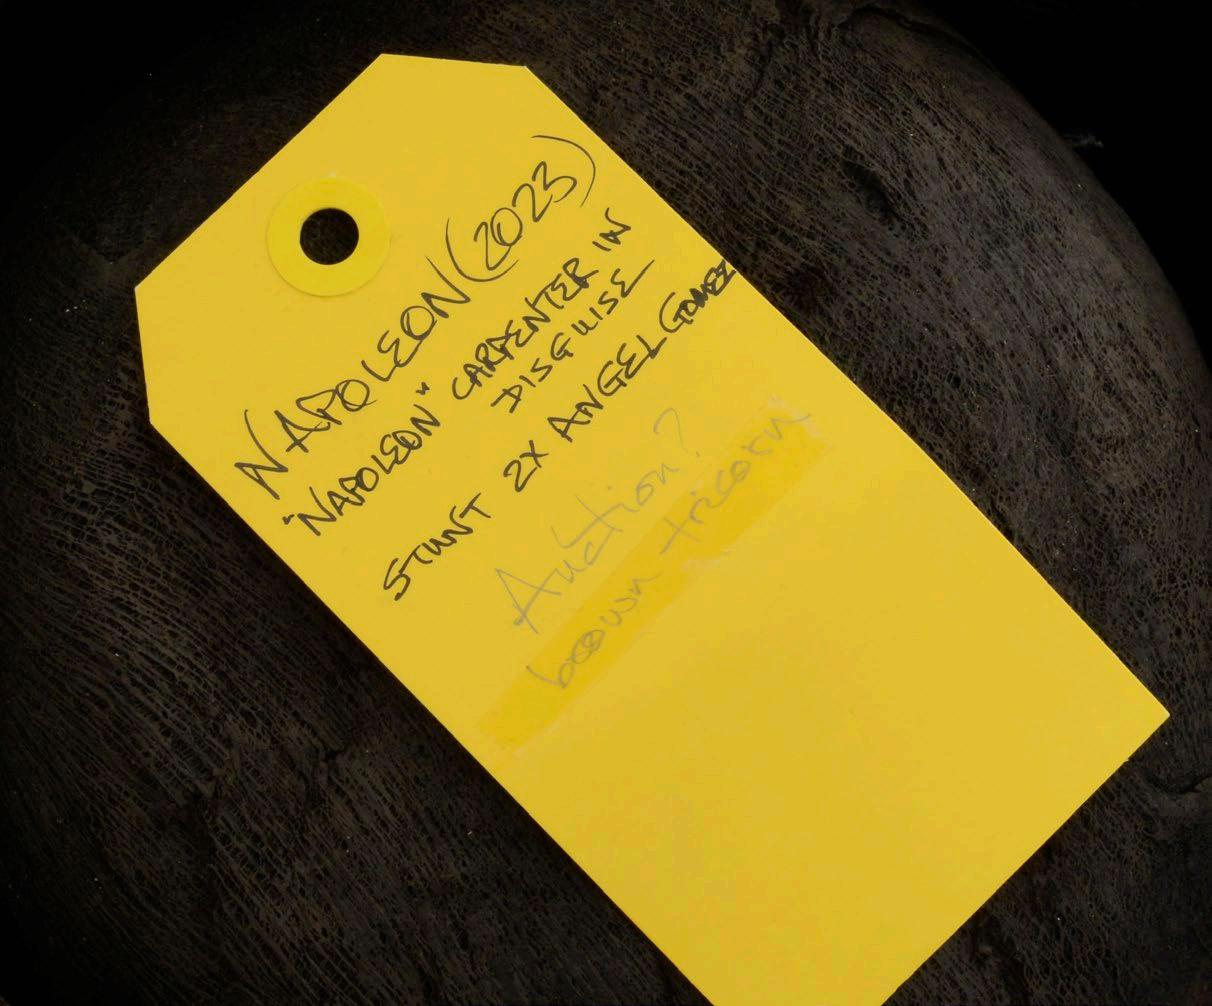 NAPOLEON (2023)
"NAPOLEON" CARPENTER IN
DISGUISE
STUNT 2X ANGEL GOMEZ
Auction?
brown tricorn